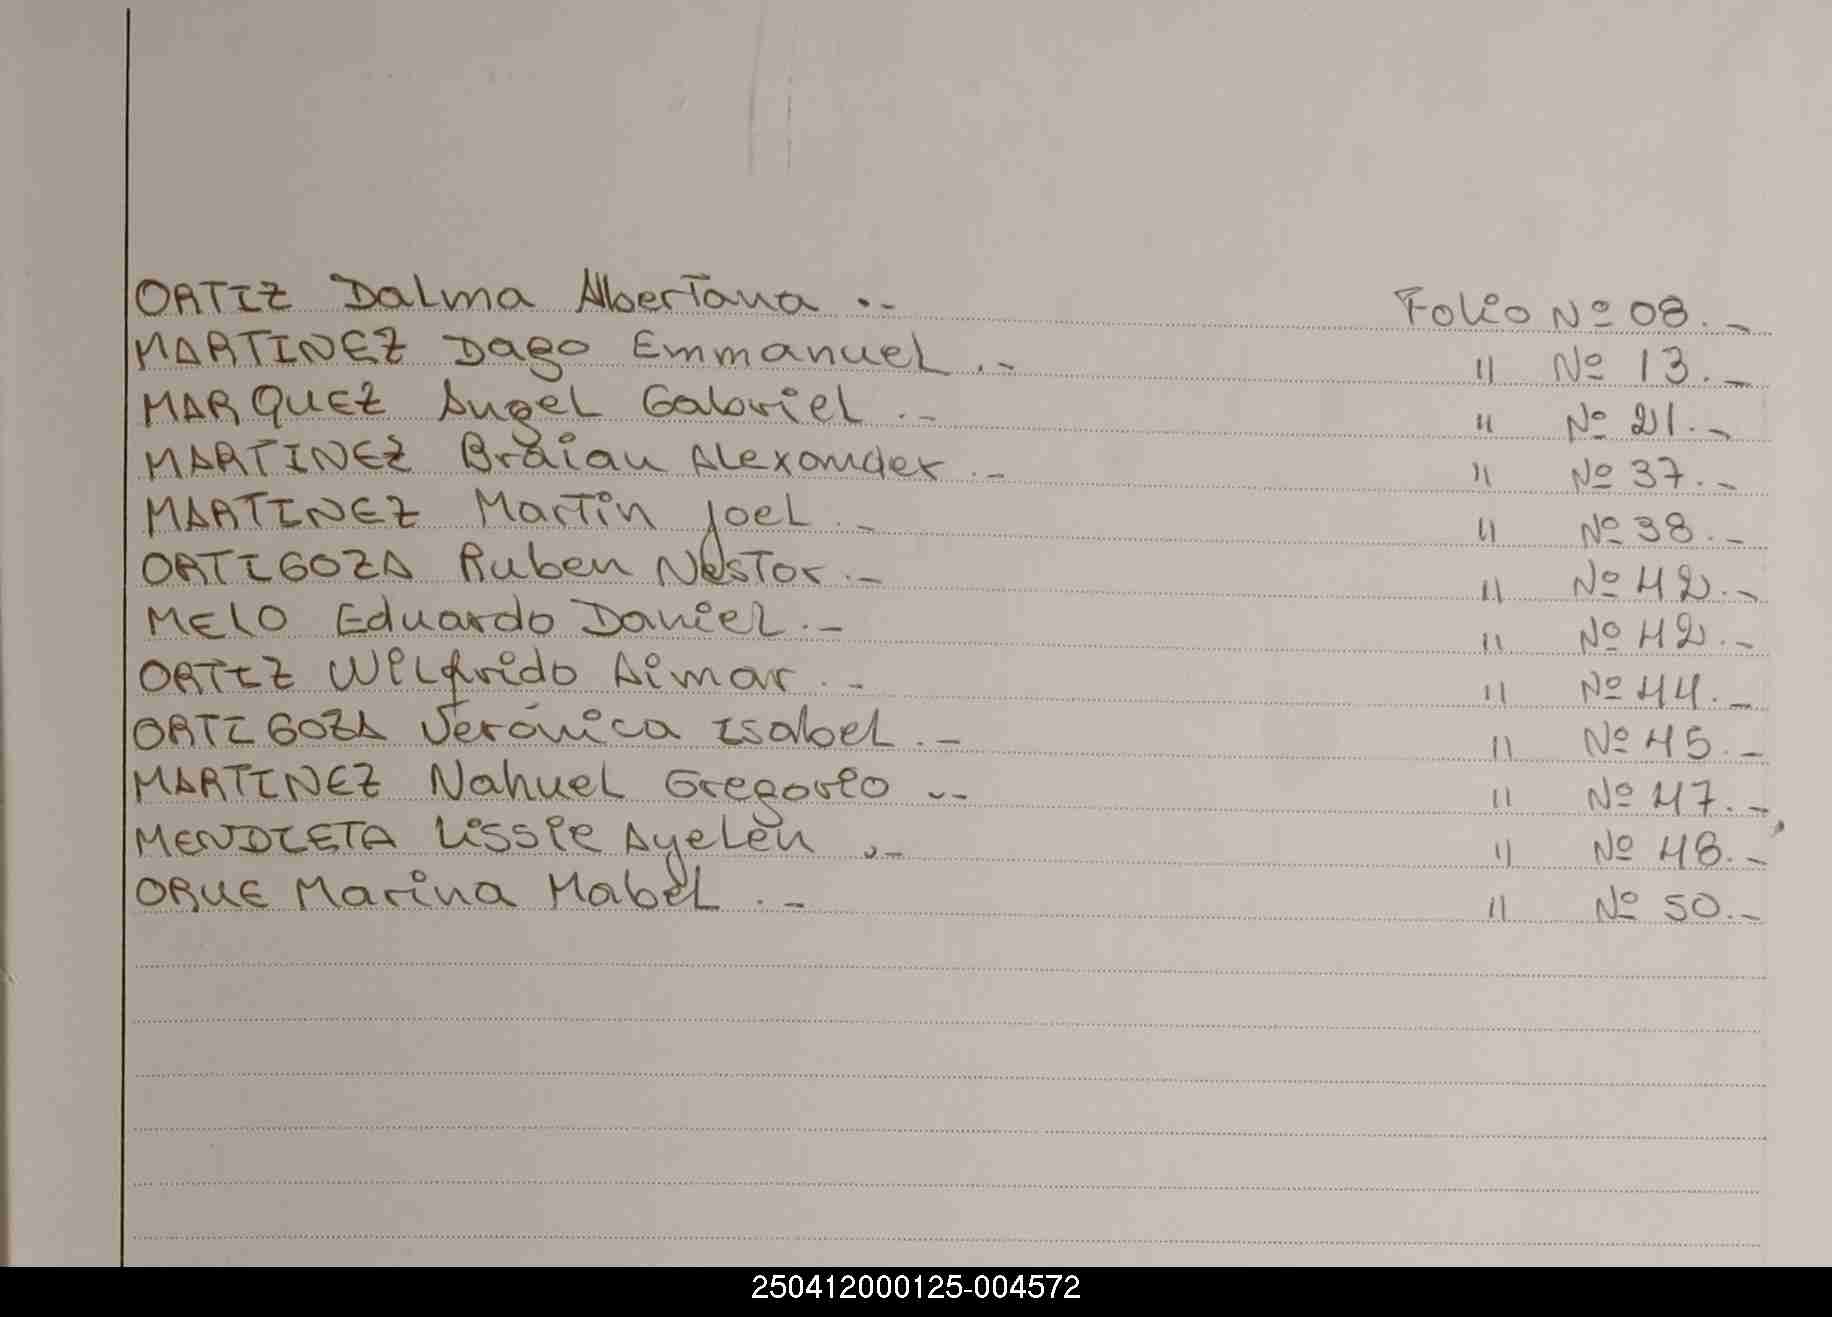 ORTIZ Dalma Albertana .- Folio Nº 08.-
MARTINEZ Dago Emmanuel .- " Nº 13.-
MARQUEZ Angel Gabriel .- " Nº 21.-
MARTINEZ Braian Alexander .- " Nº 37.-
MARTINEZ Martin Joel .- " Nº 38.-
ORTIGOZA Ruben Nestor .- " Nº 42.-
MELO Eduardo Daniel .- " Nº 42.-
ORTIZ Wilfrido Aimar .- " Nº 44.-
ORTIGOZA Verónica Isabel .- " Nº 45.-
MARTINEZ Nahuel Gregorio .- " Nº 47.-
MENDIETA Lissie Ayelén .- " Nº 48.-
ORUE Marina Mabel .- " Nº 50.-
250412000125-004572